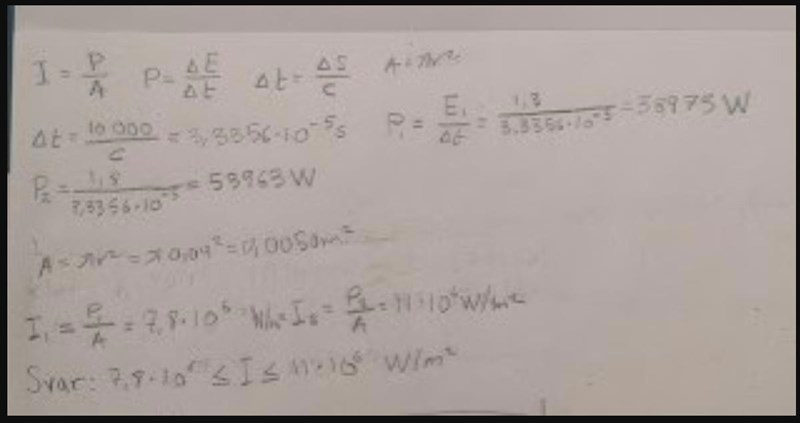 I = P/A P = ΔE/Δt Δt = ΔS/c A = πr²
Δt = 10 000/c = 3,3356·10⁻⁵s P₁ = E₁/Δt = 1,3/3,3356·10⁻⁵ = 38975 W
P₂ = 1,8/3,3356·10⁻⁵ = 53963 W
A = πr² = π0,04² = 0,0050m²
I₁ = P₁/A = 7,8·10⁶ W/m² I₂ = P₂/A = 11·10⁶ W/m²
Svar: 7,8·10⁶ ≤ I ≤ 11·10⁶ W/m²